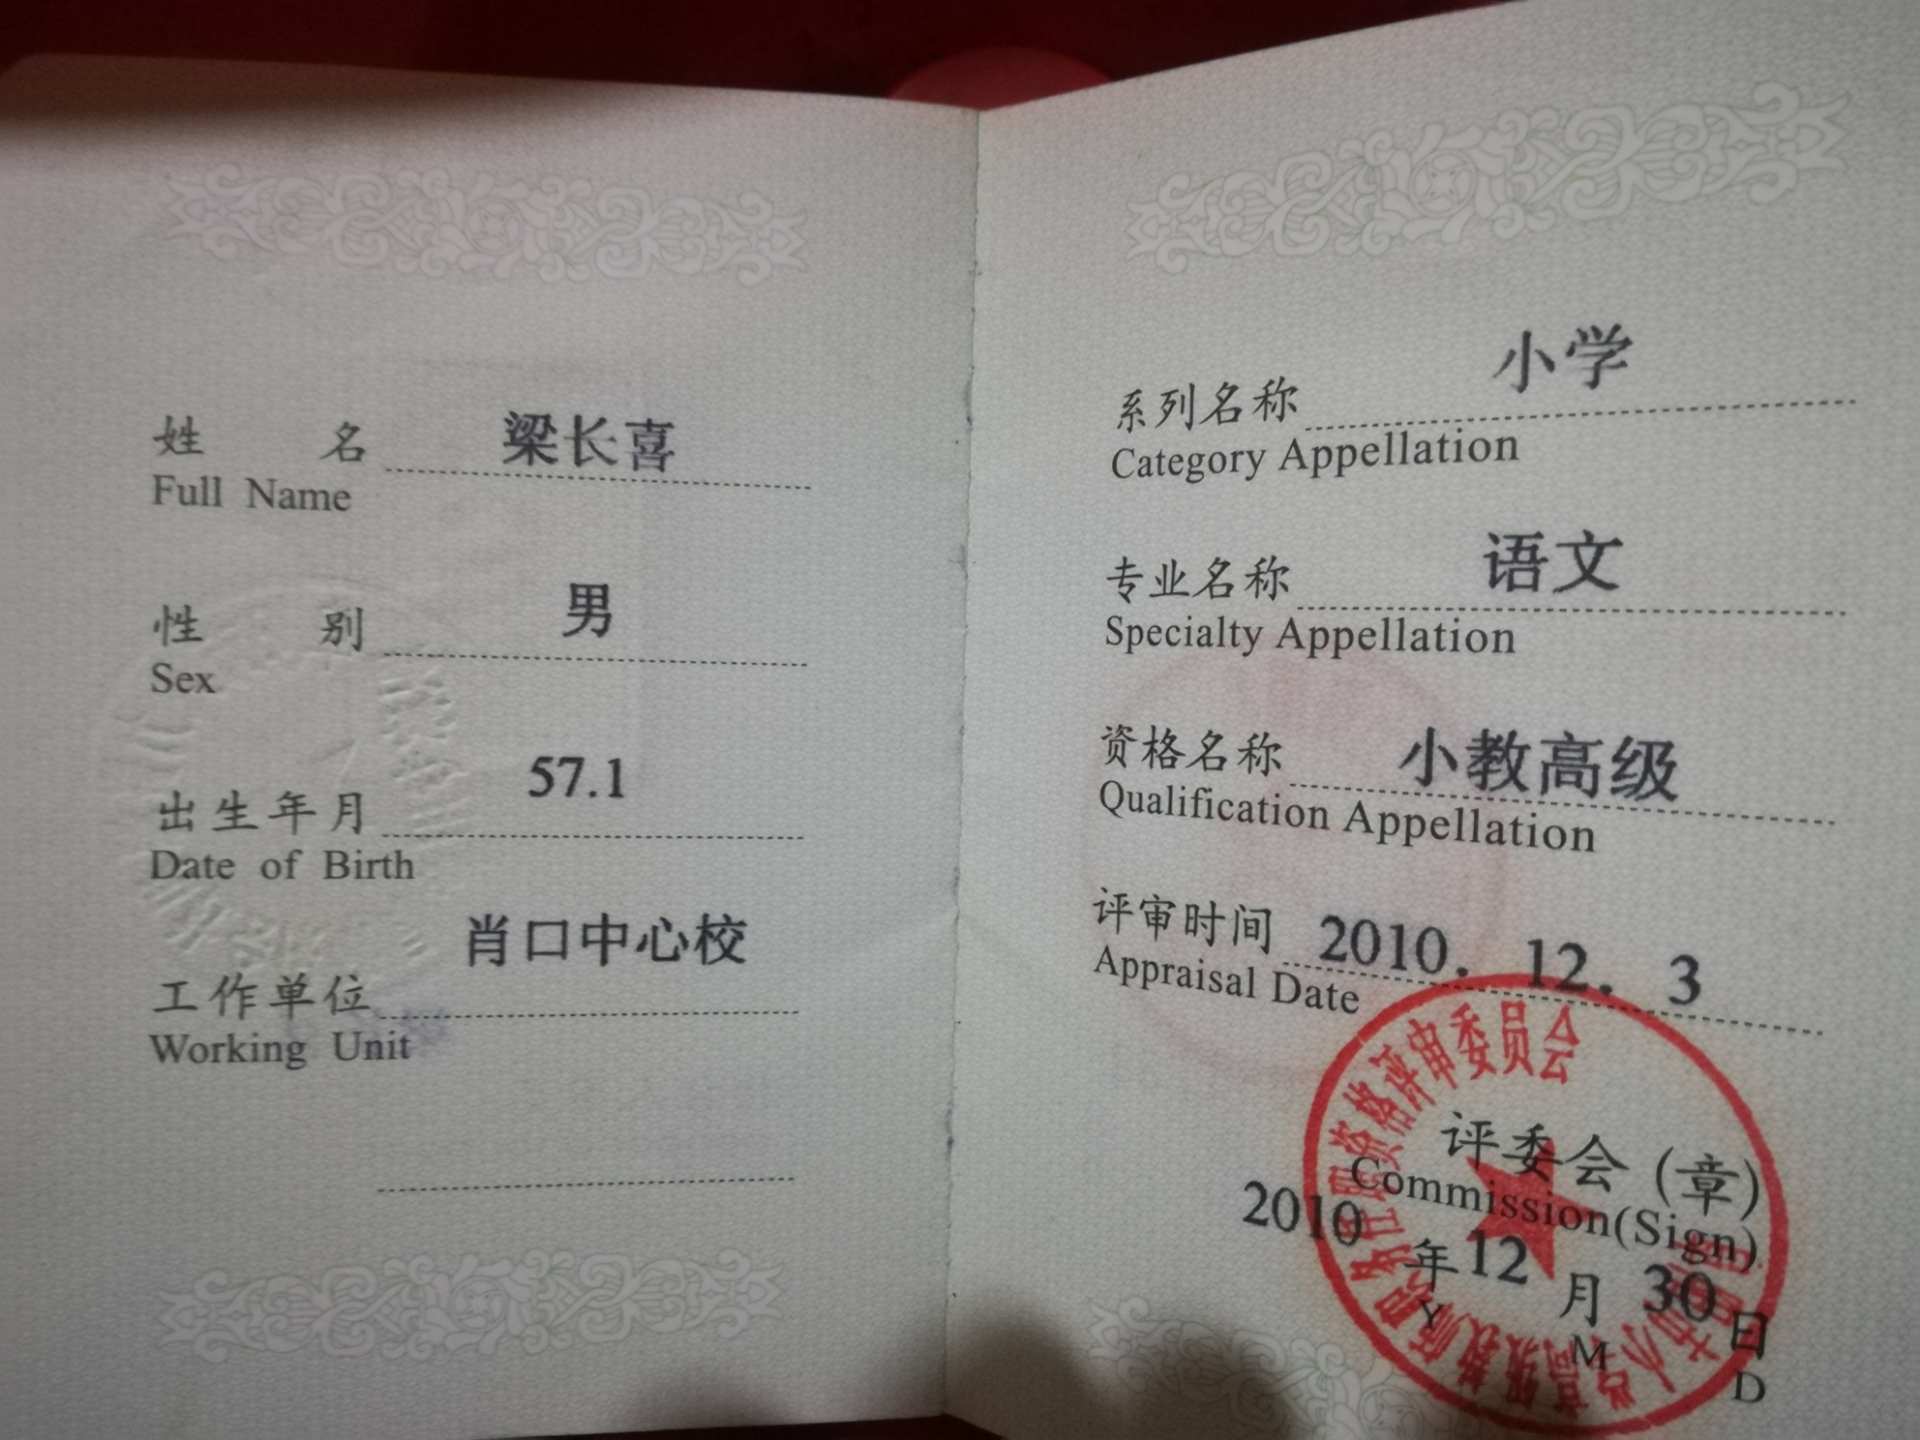 姓 名 梁长喜
Full Name
性 别 男
Sex
出生年月 57.1
Date of Birth
工作单位 肖口中心校
Working Unit
系列名称 小学
Category Appellation
专业名称 语文
Specialty Appellation
资格名称 小教高级
Qualification Appellation
评审时间 2010. 12. 3
Appraisal Date
评委会(章)
Commission(Sign)
2010 年 12 月 30 日
Y M D
小学高级教师职务任职资格评审委员会